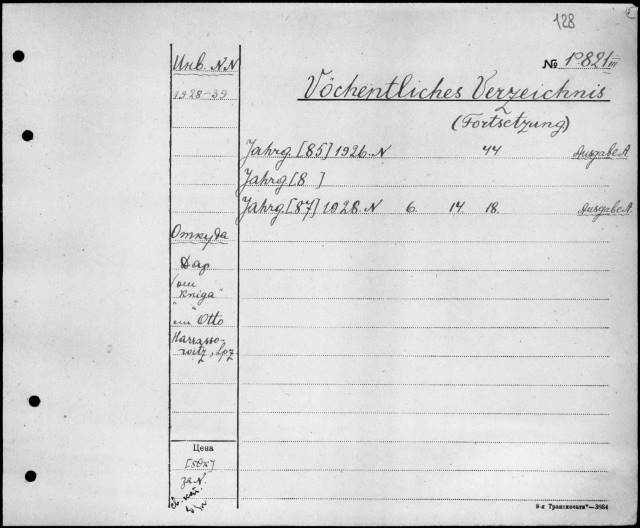 128
№ 1º821 III
Инв. NN
1928-39
Vöchentliches Verzeichnis
(Fortsetzung)
Jahrg [85] 1926. N 44 Ausgabe A.
Jahrg [8 ]
Jahrg [87] 1928. N 6. 14. 18. Ausgabe A.
Откуда
Дар
от
"Kniga"
Otto
Harrasso-
witz, Lpz
Цена
за N.
8-я Транспечати"—3984